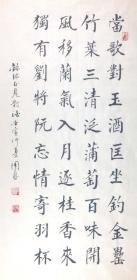 當歌對玉酒匡坐酌金罍
竹葉三清泛蒲萄百味開
風移蘭氣入月逐桂香來
獨有劉將阮忘情寄羽杯